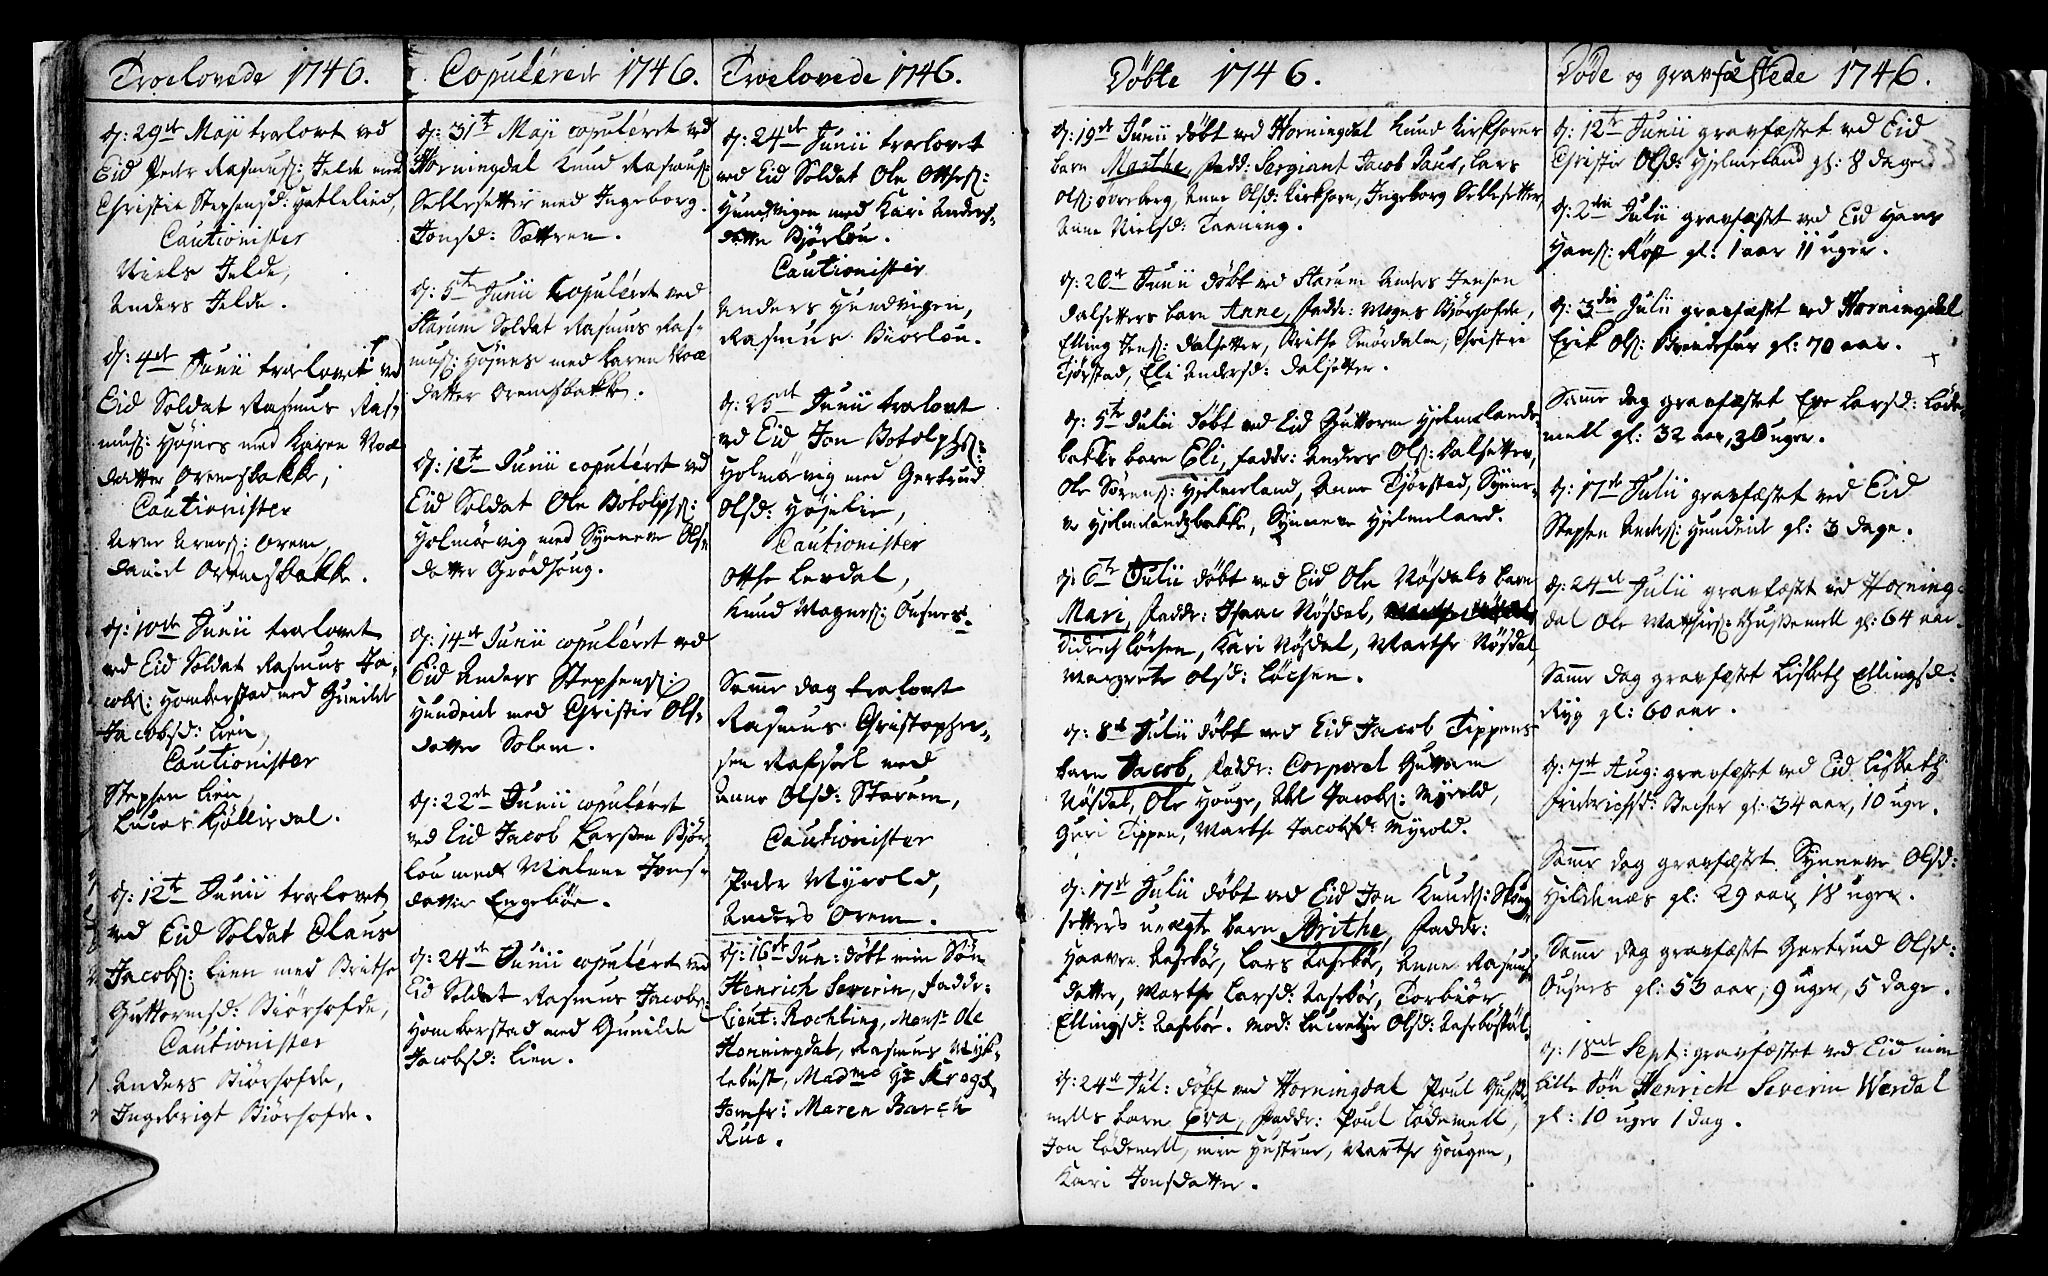 Troelovede 1746.
d: 29de Maji troelovet ved
Eid Peder Rasmuss: Jelde med
Christie Stephensd: Hatleleed,
Cautionister
Niels Jelde,
Anders Jelde.
d: 4de Junii troelovet ved
Eid Soldat Rasmus Ras-
muss: Højnes med Karen Noæ
datter Oremsbakke,
Cautionister
Arne Arness: Orem,
Daniel Oremsbakke.
d: 10de Junii troelovet
ved Eid Soldat Rasmus Ja-
cobs: Homberstad med Gunilde
Jacobsd: Lien,
Cautionister
Stephen Lien,
Lucas Kjøllisdal.
d: 12te Junii troelovet
ved Eid Soldat Claus
Jacobs: Lien med Brithe
Guttormsd: Biørhofde,
Cautionister
Anders Biørhofde,
Ingebrigt Biørhofde.
Copulerede 1746.
d: 31te Maji copuléret ved
Horningdal Knud Rasmus:
Selleseter med Ingeborg
Jonsd: Sætren.
d: 5te Junii copuléret ved
Starum Soldat Rasmus Ras-
muss: Højnes med Karen Noæ
datter Oremsbakke.
d: 12te Junii copuléret ved
Eid Soldat Ole Botolphs:
Holmøevig med Synneve Ols-
datter Grødsong.
d: 14de Junii copuléret ved
Eid Anders Stephenss:
Hundeide med Christie Ols-
datter Solem.
d: 22de Junii copuléret
ved Eid Jacob Larssen Bjør-
lou med Malene Jons-
datter Engebøe.
d: 24de Junii copuléret ved
Eid Soldat Rasmus Jacobs:
Homberstad med Gunilde
Jacobsd: Lien.
Troelovede 1746.
d: 24de Junii troelovet
ved Eid Soldat Ole Otthes:
Hundvigen med Kari Anders-
datter Bjørlou.
Cautionister
Anders Hundvigen,
Rasmus Biørlou.
d: 25de Junii troelovet
ved Eid Jon Botolphs:
Holmøevig med Gertrud
Olsd: Højelie,
Cautionister
Otthe Levdal,
Knud Magness: Ousnes.
Samme dag troelovet
Rasmus Christopher-
sen Rafsæl med
Anne Olsd: Starum,
Cautionister
Peder Myrold,
Anders Orem.
d: 16de Jun: døbt min Søn
Henrich Severin, Faddr:
Lieut: Rochling, Mons: Ole
Honningdal, Rasmus Mykl-
lebust, Madme Hr Krogs,
Jomfr: Maren Barch
Rue.
Døbte 1746.
d: 19de Junii døbt ved Horningdal Knud Kirkhorns
barn Marthe, Fadd: Sergiant Jacob Taus, Lars
Ols: Øvreberg, Anne Olsd: Kirkhorn, Ingeborg Selleseter,
Anne Nielsd: Tenning.
d: 26de Junii døbt ved Starum Anders Jensen
Dalsetters barn Anne, Faddr: Mogns Bjørhofde,
Elling Jens: Dalsetter, Brithe Smørdalen, Christie
Tjørstad, Eli Andersd: Dalsetter.
d: 5te Julii døbt ved Eid Guttorm Hjelmelands-
bakke barn Eli, Faddr: Anders Ols: Dalsetter,
Ole Sørens: Hjelmeland, Anne Tjørstad, Synne-
ve Hjelmelandsbakke, Synneve Hjelmeland.
d: 6te Julii døbt ved Eid Ole Nøsdals barn
Mari, Faddr: Isaac Nøsdal,
Didrich Løchen, Kari Nøsdal, Marthe Nøsdal,
Margrete Olsd: Løchen.
d: 8de Julii døbt ved Eid Jacob Tippens
barn Jacob, Faddr: Corporal Guttorm
Nøsdal, Ole Houge, Abl Jacobs: Myrold,
Guri Tippen, Marthe Jacobsd: Myrold.
d: 17de Julii døbt ved Eid Jon Knuds: Skoug-
setters uægte barn Brithe, Faddr:
Haaver Aasebøe, Lars Aasebøe, Anne Rasmus-
datter, Marthe Larsd: Aasebøe, Torbiør
Ellingsd: Aasebøe. Mod: Lucretje Olsd: Aasebøstøl.
d: 24de Jul: døbt ved Horningdal Poul Guske-
mells barn Eva, Faddr: Poul Lødemell,
Jon Lødemell, min Hustrue, Marthe Hougen,
Kari Jonsdatter.
Døde og gravfæstede 1746.
33
d: 12te Junii gravfæstet ved Eid
Christie Olsd: Hjelmeland gl: 8 dage.
d: 2den Julii gravfæstet ved Eid Hans
Hans: Røys gl: 1 aar 11 uger.
d: 3die Julii gravfæstet ved Horningdal
Erik Ols: Breidefur gl: 70 aar.
Samme dag gravfæstet Eve Larsd: Løde-
mell gl: 32 aar, 30 uger.
d: 17de Julii gravfæstet ved Eid
Stephen Anders: Hundeide gl: 3 dage.
d: 24de Julii gravfæstet ved Horning-
dal Ole Matthiess: Guskemell gl: 64 aar.
Samme dag gravfæstet Lisbeth Ellingsd:
Ryg gl: 60 aar.
d: 7de Aug: gravfæstet ved Eid Lisbeth
Friderichsd: Becher gl: 34 aar, 10 uger.
Samme dag gravfæstet Synneve Olsd:
Hildenæs gl: 29 aar, 18 uger.
Samme dag gravfæstet Gertrud Olsd:
Ousnes gl: 53 aar, 9 uger, 5 dage.
d: 18de Sept: gravfæstet ved Eid min
lille Søn Henrich Severin Werdal
gl: 10 uger 1 dag.